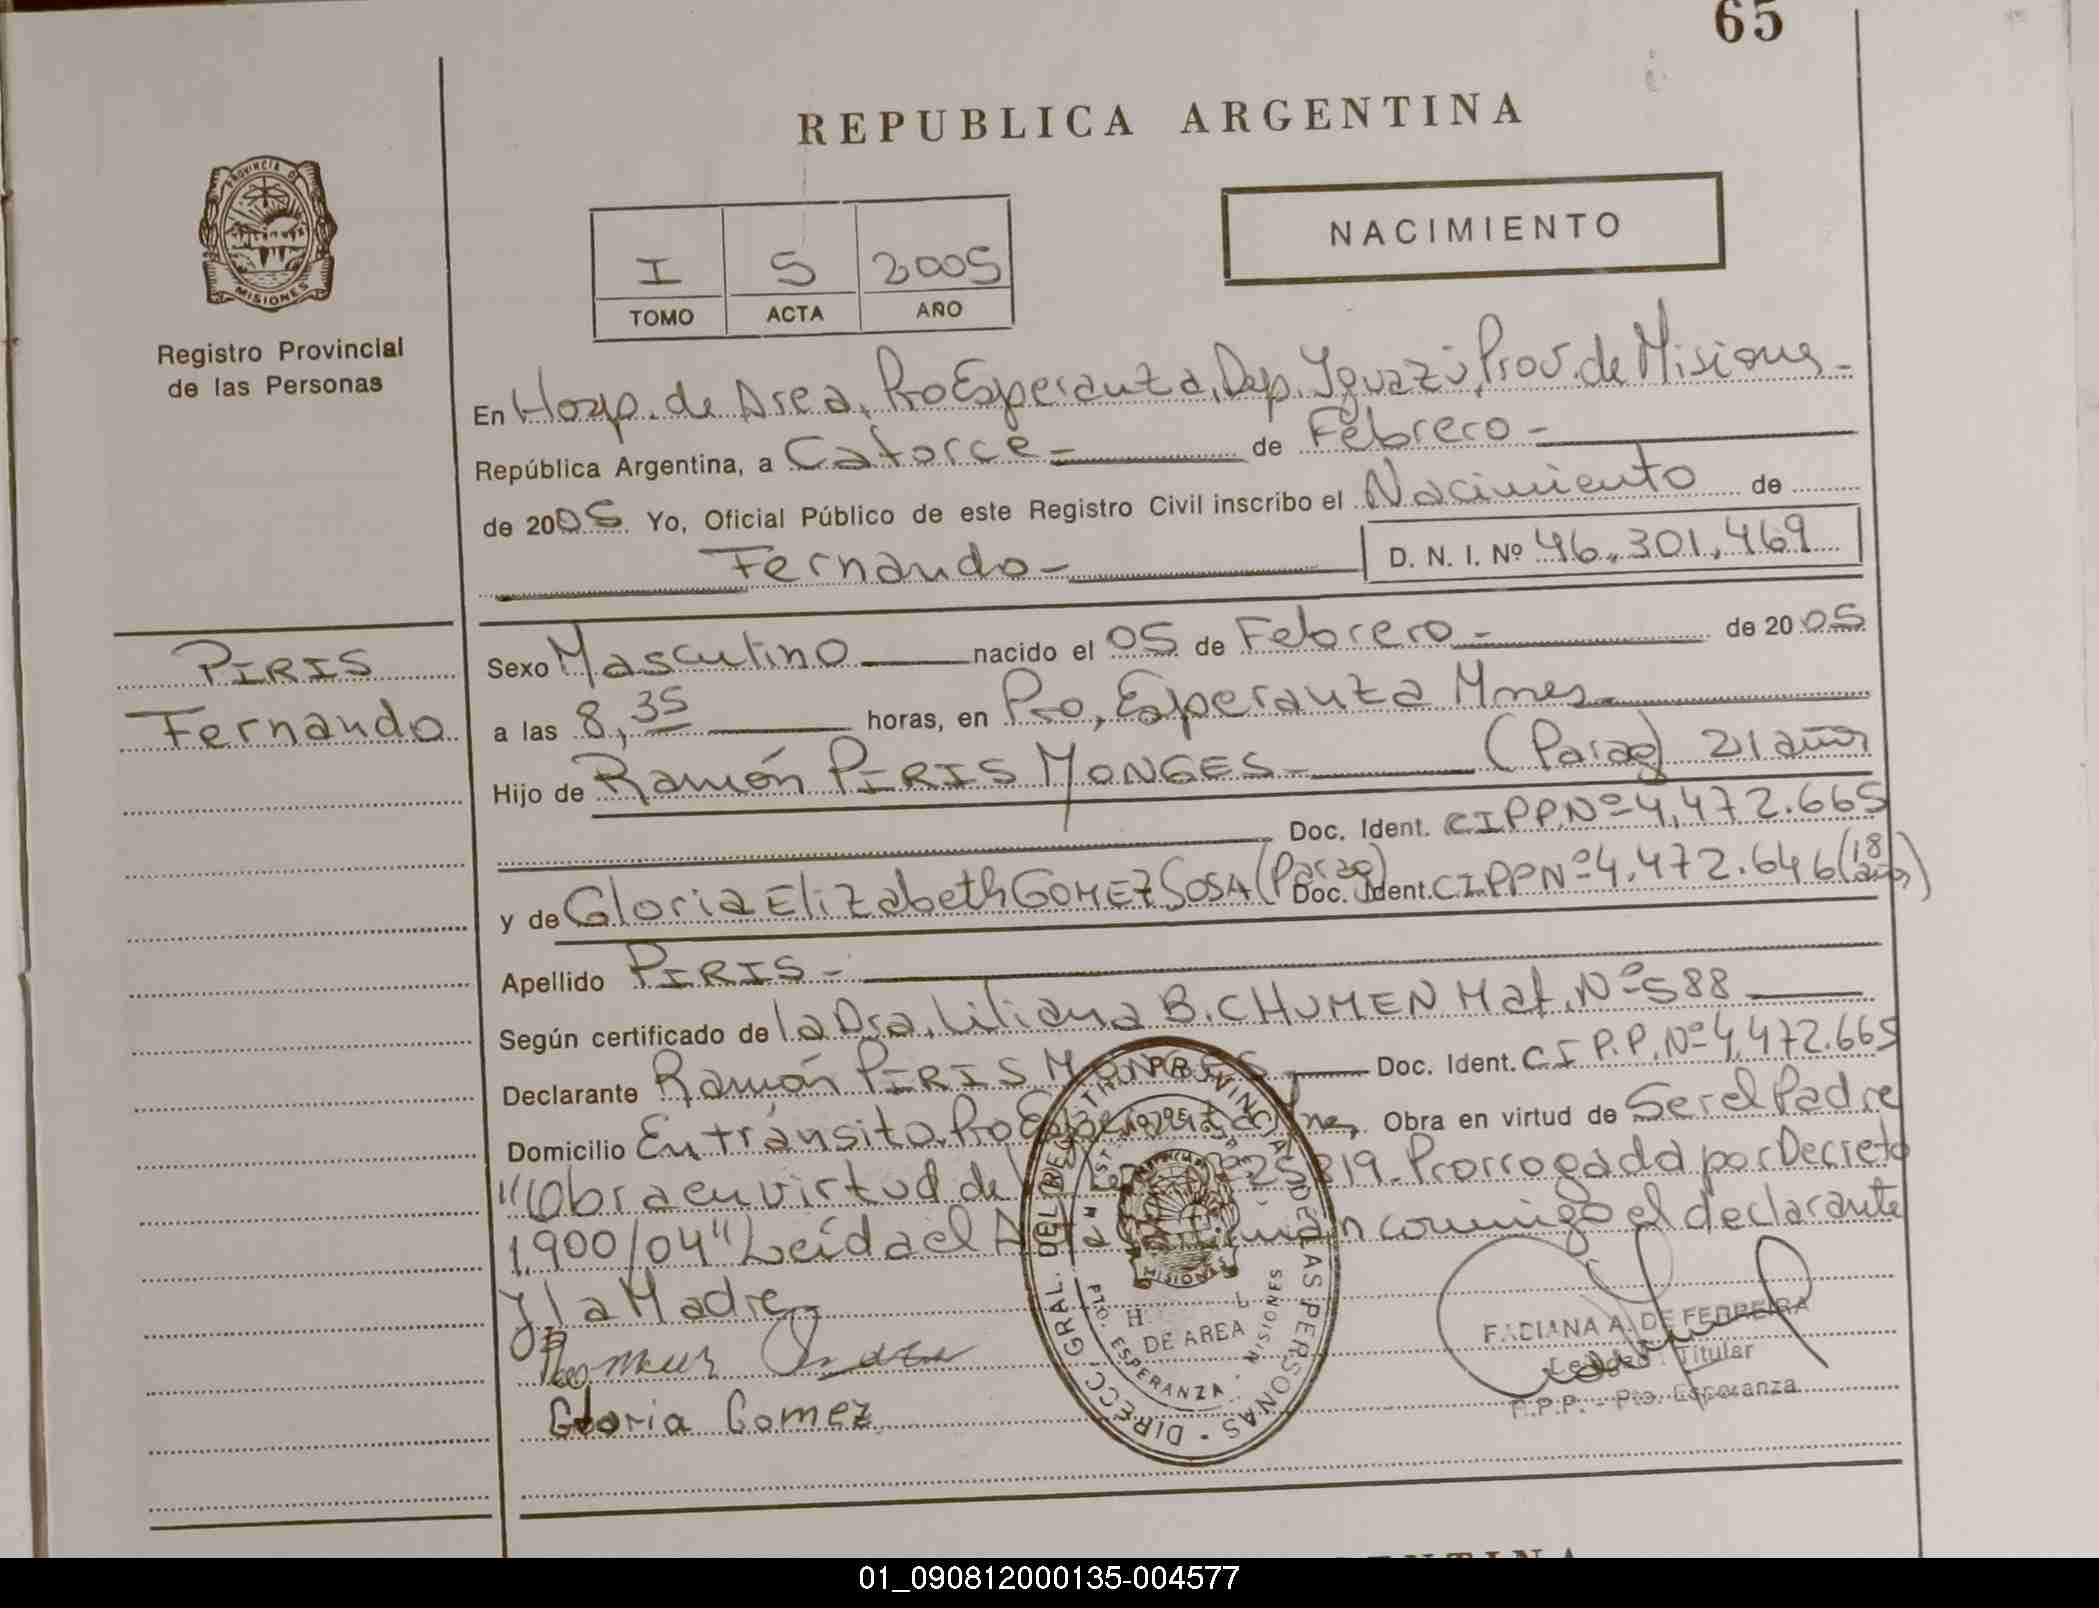 65
REPUBLICA ARGENTINA
PROVINCIA DE
MISIONES
Registro Provincial
de las Personas
I 5 2005
TOMO ACTA AÑO
NACIMIENTO
En Hosp. de Area, Pto Esperanza, Dep. Iguazú, Prov. de Misiones-
República Argentina, a Catorce= de Febrero-
de 2005 Yo, Oficial Público de este Registro Civil inscribo el Nacimiento de
Fernando- D. N. I. Nº 46.301.469
PIRIS
Fernando
Sexo Masculino nacido el 05 de Febrero- de 2005
a las 8,35 horas, en Pto, Esperanza Mnes-
Hijo de Ramón PIRIS MONGES- (Parag) 21 años
Doc. Ident. CIPP.Nº4,472.665
y de Gloria Elizabeth GOMEZ SOSA (Parag) Doc. Ident. CIPPNº4.472.646 (18 años)
Apellido PIRIS-
Según certificado de la Dra. Liliana B. CHUMEN Mat. Nº588
Declarante Ramón PIRIS MONGES Doc. Ident. CI P.P. Nº4,472.665
Domicilio En tránsito Pto Esperanza Mnes, Obra en virtud de Ser el Padre
"Obra en virtud de 25819. Prorrogada por Decreto
1.900/04" Leída el Acta firman conmigo el declarante
y la Madre
Gloria Gomez
DIRECC. GRAL. DEL REGISTRO PROVINCIAL DE LAS PERSONAS
MISIONES
DE AREA
PTO. ESPERANZA - MISIONES
FABIANA A. DE FERREIRA
Titular
R.P.P. - Pto. Esperanza
01_090812000135-004577